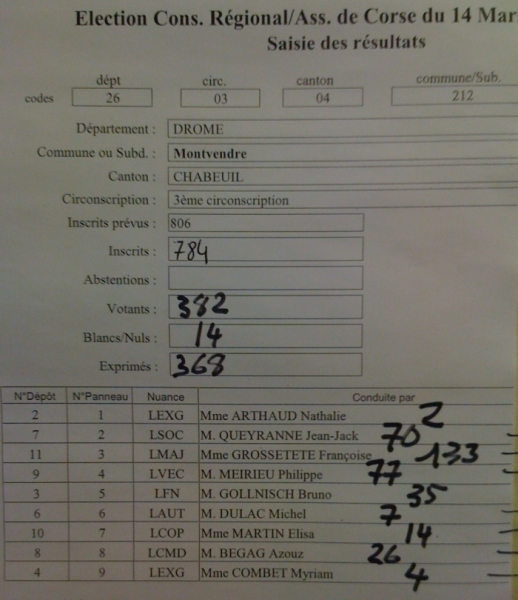 Election Cons. Régional/Ass. de Corse du 14 Mar
Saisie des résultats
dépt circ. canton commune/Sub.
codes 26 03 04 212
Département : DROME
Commune ou Subd. : Montvendre
Canton : CHABEUIL
Circonscription : 3ème circonscription
Inscrits prévus : 806
Inscrits : 784
Abstentions :
Votants : 382
Blancs/Nuls : 14
Exprimés : 368
N°Dépôt N°Panneau Nuance Conduite par
2 1 LEXG Mme ARTHAUD Nathalie 2
7 2 LSOC M. QUEYRANNE Jean-Jack 70
11 3 LMAJ Mme GROSSETETE Françoise 133
9 4 LVEC M. MEIRIEU Philippe 77
3 5 LFN M. GOLLNISCH Bruno 35
6 6 LAUT M. DULAC Michel 7
10 7 LCOP Mme MARTIN Elisa 14
8 8 LCMD M. BEGAG Azouz 26
4 9 LEXG Mme COMBET Myriam 4